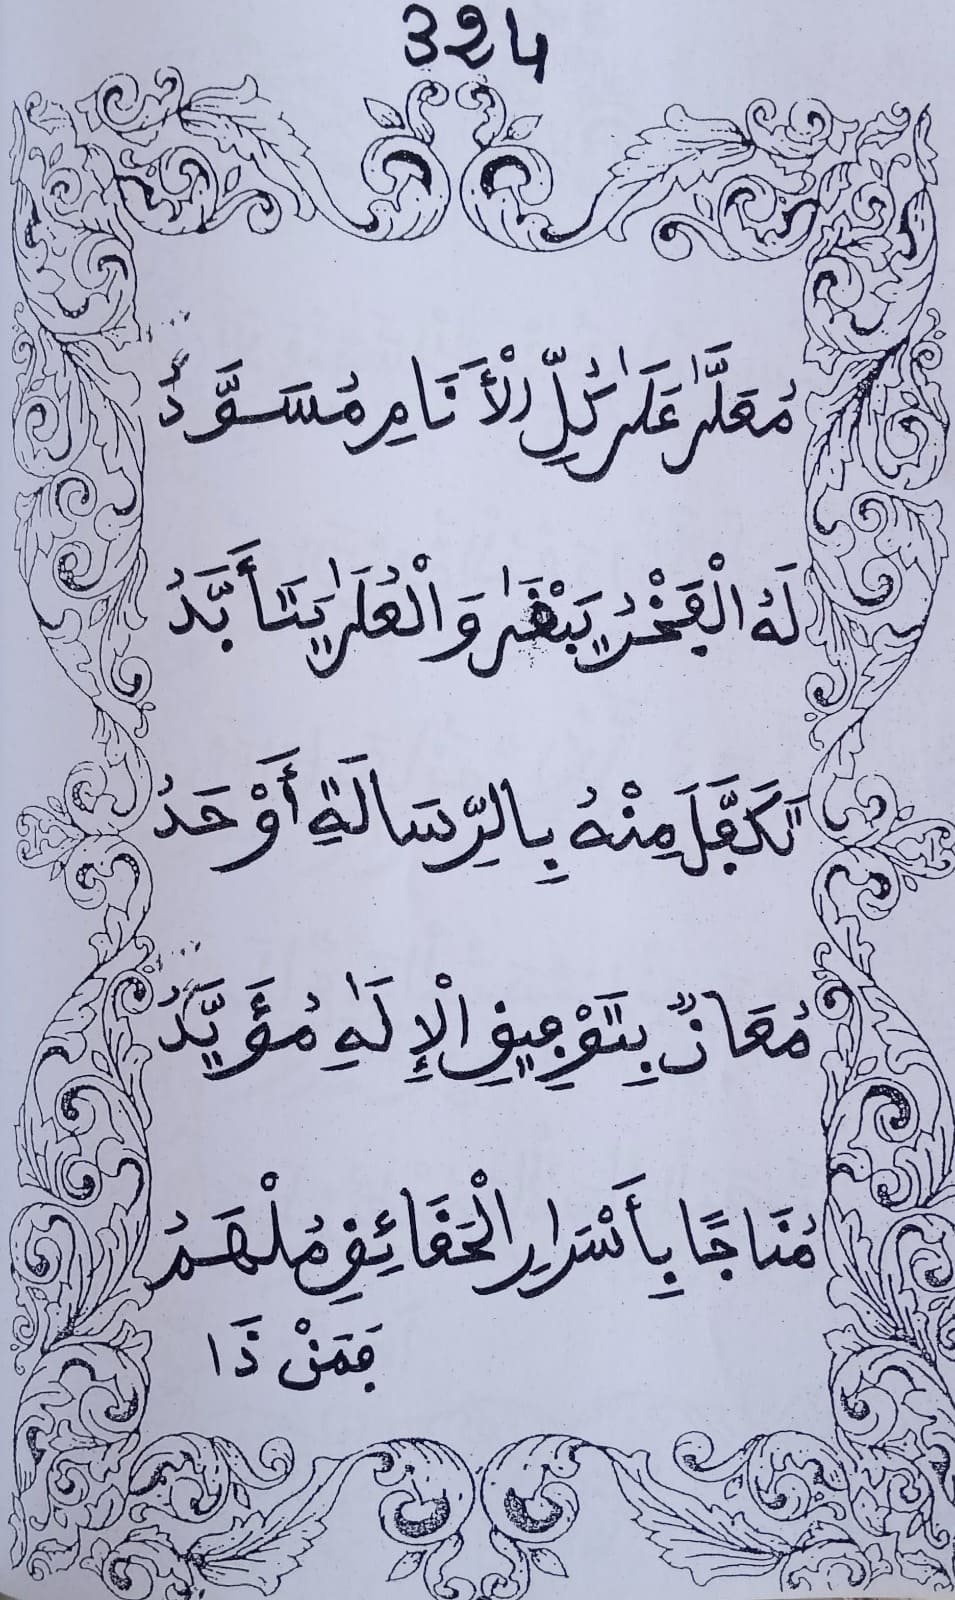 324
مُعَلَّىٰ عَلَىٰ كُلِّ الْأَنَامِ مُسَوَّدٌ
لَهُ الْفَخْرُ يَبْقَىٰ وَالْعُلَىٰ يَتَأَبَّدُ
تَكَفَّلَ مِنْهُ بِالرِّسَالَةِ أَوْحَدُ
مُعَانٌ بِتَوْفِيقِ الْإِلَٰهِ مُؤَيَّدُ
مُنَاجًا بِأَسْرَارِ الْحَقَائِقِ مُلْهَمُ
فَمَنْ ذَا